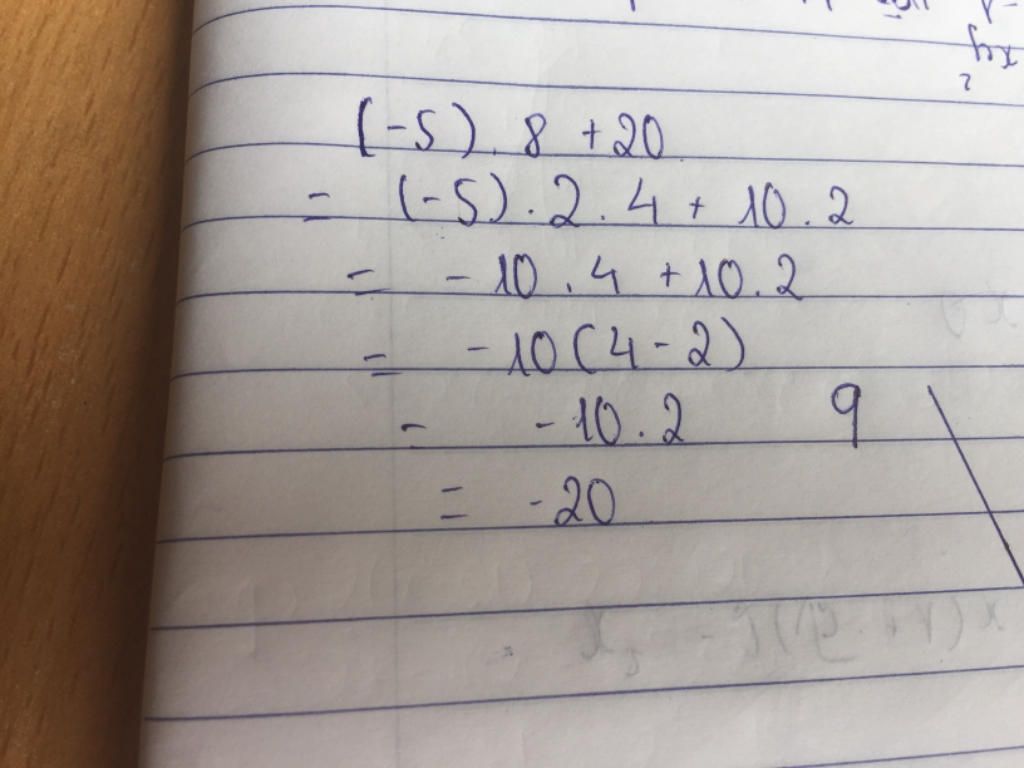 (-5). 8 +20
= (-5). 2. 4 + 10. 2
= -10. 4 +10. 2
= -10(4-2)
= -10. 2 9
= -20